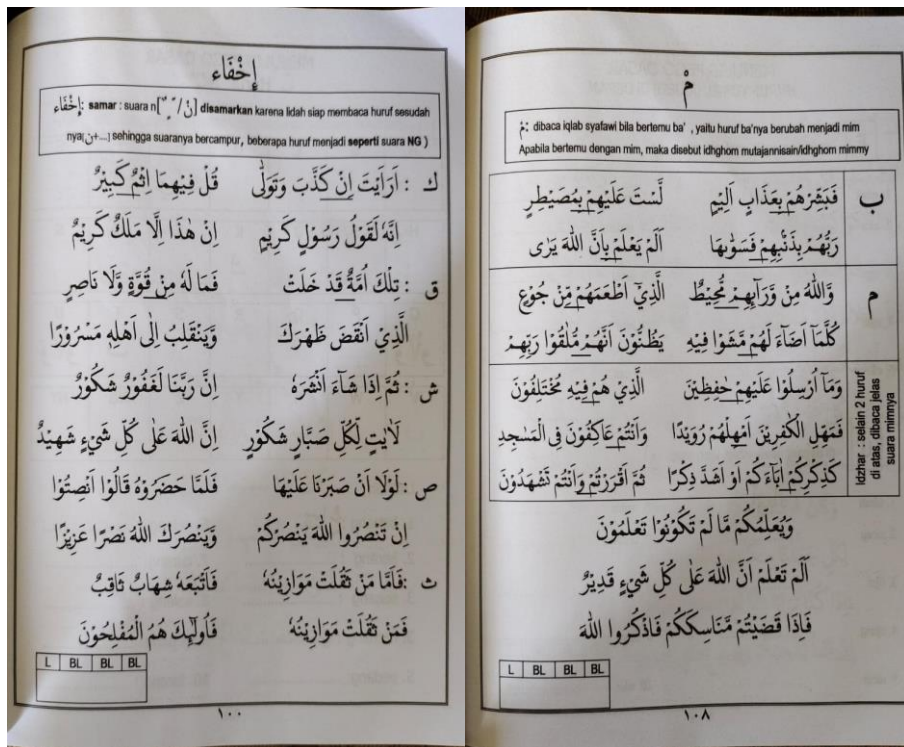 إِخْفَاء
إِخْفَاء: samar : suara n[نْ / ــًــٍــٌ] disamarkan karena lidah siap membaca huruf sesudah
nya[ن+...] sehingga suaranya bercampur, beberapa huruf menjadi seperti suara NG )
ك : اَرَاَيْتَ اِنْ كَذَّبَ وَتَوَلّٰى قُلْ فِيْهِمَا اِثْمٌ كَبِيْرٌ
اِنَّهٗ لَقَوْلُ رَسُوْلٍ كَرِيْمٍ اِنْ هٰذَا اِلَّا مَلَكٌ كَرِيْمٌ
ق : تِلْكَ اُمَّةٌ قَدْ خَلَتْ فَمَا لَهٗ مِنْ قُوَّةٍ وَّلَا نَاصِرٍ
الَّذِيْ اَنْقَضَ ظَهْرَكَ وَّيَنْقَلِبُ اِلٰى اَهْلِهٖ مَسْرُوْرًا
ش : ثُمَّ اِذَا شَآءَ اَنْشَرَهٗ اِنَّ رَبَّنَا لَغَفُوْرٌ شَكُوْرٌ
لَاٰيٰتٍ لِّكُلِّ صَبَّارٍ شَكُوْرٍ اِنَّ اللّٰهَ عَلٰى كُلِّ شَيْءٍ شَهِيْدٌ
ص : لَوْلَا اَنْ صَبَرْنَا عَلَيْهَا فَلَمَّا حَضَرُوْهُ قَالُوْا اَنْصِتُوْا
اِنْ تَنْصُرُوا اللّٰهَ يَنْصُرْكُمْ وَّيَنْصُرَكَ اللّٰهُ نَصْرًا عَزِيْزًا
ث : فَاَمَّا مَنْ ثَقُلَتْ مَوَازِيْنُهٗ فَاَتْبَعَهٗ شِهَابٌ ثَاقِبٌ
فَمَنْ ثَقُلَتْ مَوَازِيْنُهٗ فَاُولٰٓئِكَ هُمُ الْمُفْلِحُوْنَ
L BL BL BL
١٠٠
مْ
مْ: dibaca iqlab syafawi bila bertemu ba' , yaitu huruf ba'nya berubah menjadi mim
Apabila bertemu dengan mim, maka disebut idhghom mutajannisain/idhghom mimmy
ب فَبَشِّرْهُمْ بِعَذَابٍ اَلِيْمٍ لَسْتَ عَلَيْهِمْ بِمُصَيْطِرٍ
رَبُّهُمْ بِذَنْۢبِهِمْ فَسَوّٰىهَا اَلَمْ يَعْلَمْ بِاَنَّ اللّٰهَ يَرٰى
م وَاللّٰهُ مِنْ وَّرَآىِٕهِمْ مُّحِيْطٌ الَّذِيْٓ اَطْعَمَهُمْ مِّنْ جُوْعٍ
كُلَّمَآ اَضَآءَ لَهُمْ مَّشَوْا فِيْهِ يَظُنُّوْنَ اَنَّهُمْ مُّلٰقُوْا رَبِّهِمْ
Idzhar : selain 2 huruf
di atas, dibaca jelas
suara mimnya
وَمَآ اُرْسِلُوْا عَلَيْهِمْ حٰفِظِيْنَ الَّذِيْ هُمْ فِيْهِ مُخْتَلِفُوْنَ
فَمَهِّلِ الْكٰفِرِيْنَ اَمْهِلْهُمْ رُوَيْدًا وَاَنْتُمْ عَاكِفُوْنَ فِى الْمَسٰجِدِ
كَذِكْرِكُمْ اٰبَآءَكُمْ اَوْ اَشَدَّ ذِكْرًا ثُمَّ اَقْرَرْتُمْ وَاَنْتُمْ تَشْهَدُوْنَ
وَيُعَلِّمُكُمْ مَّا لَمْ تَكُوْنُوْا تَعْلَمُوْنَ
اَلَمْ تَعْلَمْ اَنَّ اللّٰهَ عَلٰى كُلِّ شَيْءٍ قَدِيْرٌ
فَاِذَا قَضَيْتُمْ مَّنَاسِكَكُمْ فَاذْكُرُوا اللّٰهَ
L BL BL BL
١٠٨